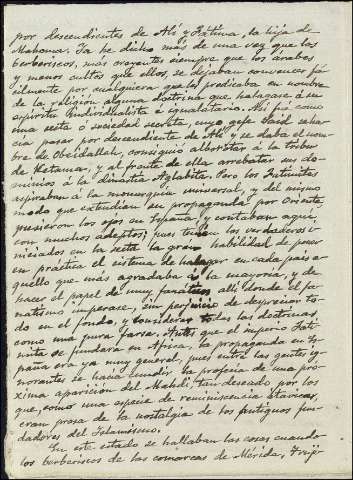 por descendientes de Alí y Fátima, la hija de
Mahoma. Ya he dicho más de una vez que los
berberiscos, más creyentes siempre que los árabes
y menos cultos que ellos, se dejaban convencer fá-
cilmente por cualquiera que les predicaba en nombre
de la religión alguna doctrina que halagase á su
espíritu individualista é igualatorio. Así fué como
una secta ó sociedad secreta, cuyo gefe Said se ha-
cía pasar por descendiente de Alí y se daba el nom-
bre de Obeidallah, consiguió alborotar á la tribu
de Ketama, y al frente de ella arrebatar sus do-
minios á la dinastía Aglabita. Pero los Fatimitas
aspiraban á la monarquía universal, y del mismo
modo que extendían su propaganda por Oriente
pusieron los ojos en España, y contaban aquí
con muchos adeptos; pues tenían los verdaderos i-
niciados en la secta la gran habilidad de poner
en práctica el sistema de halagar en cada país a-
quello que más agradaba á la mayoría, y de
hacer el papel de muy fanáticos allí donde el fa-
natismo imperase, sin perjuicio de despreciar to-
do en el fondo, y considerar todas las doctrinas
como una pura farsa. Antes que el imperio Fati-
mita se fundara en Africa, la propaganda en Es-
paña era ya muy general, pues entre las gentes ig-
norantes se hacía cundir la profecía de una pró-
xima aparición del Mahdí, tan deseado por los
que, como una especie de reminiscencia atávica,
eran presa de la nostalgia de los antiguos fun-
dadores del Islamismo.
En este estado se hallaban las cosas cuando
los berberiscos de las comarcas de Mérida, Truji-